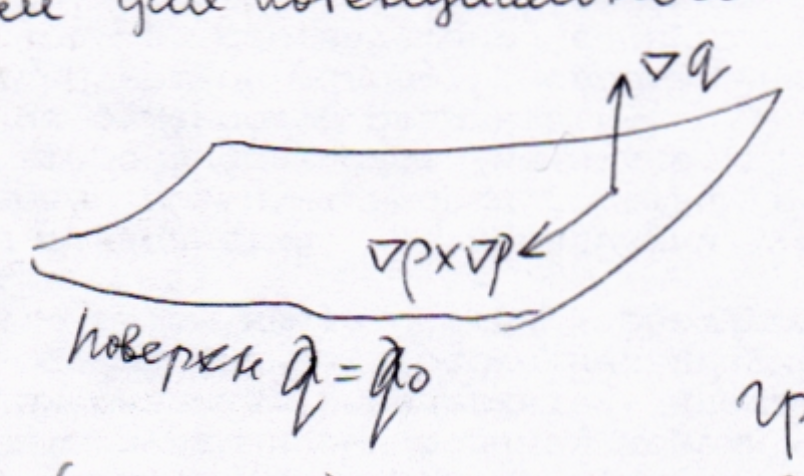 для потенциального
∇q
∇ρ×∇p
поверхн q = q₀